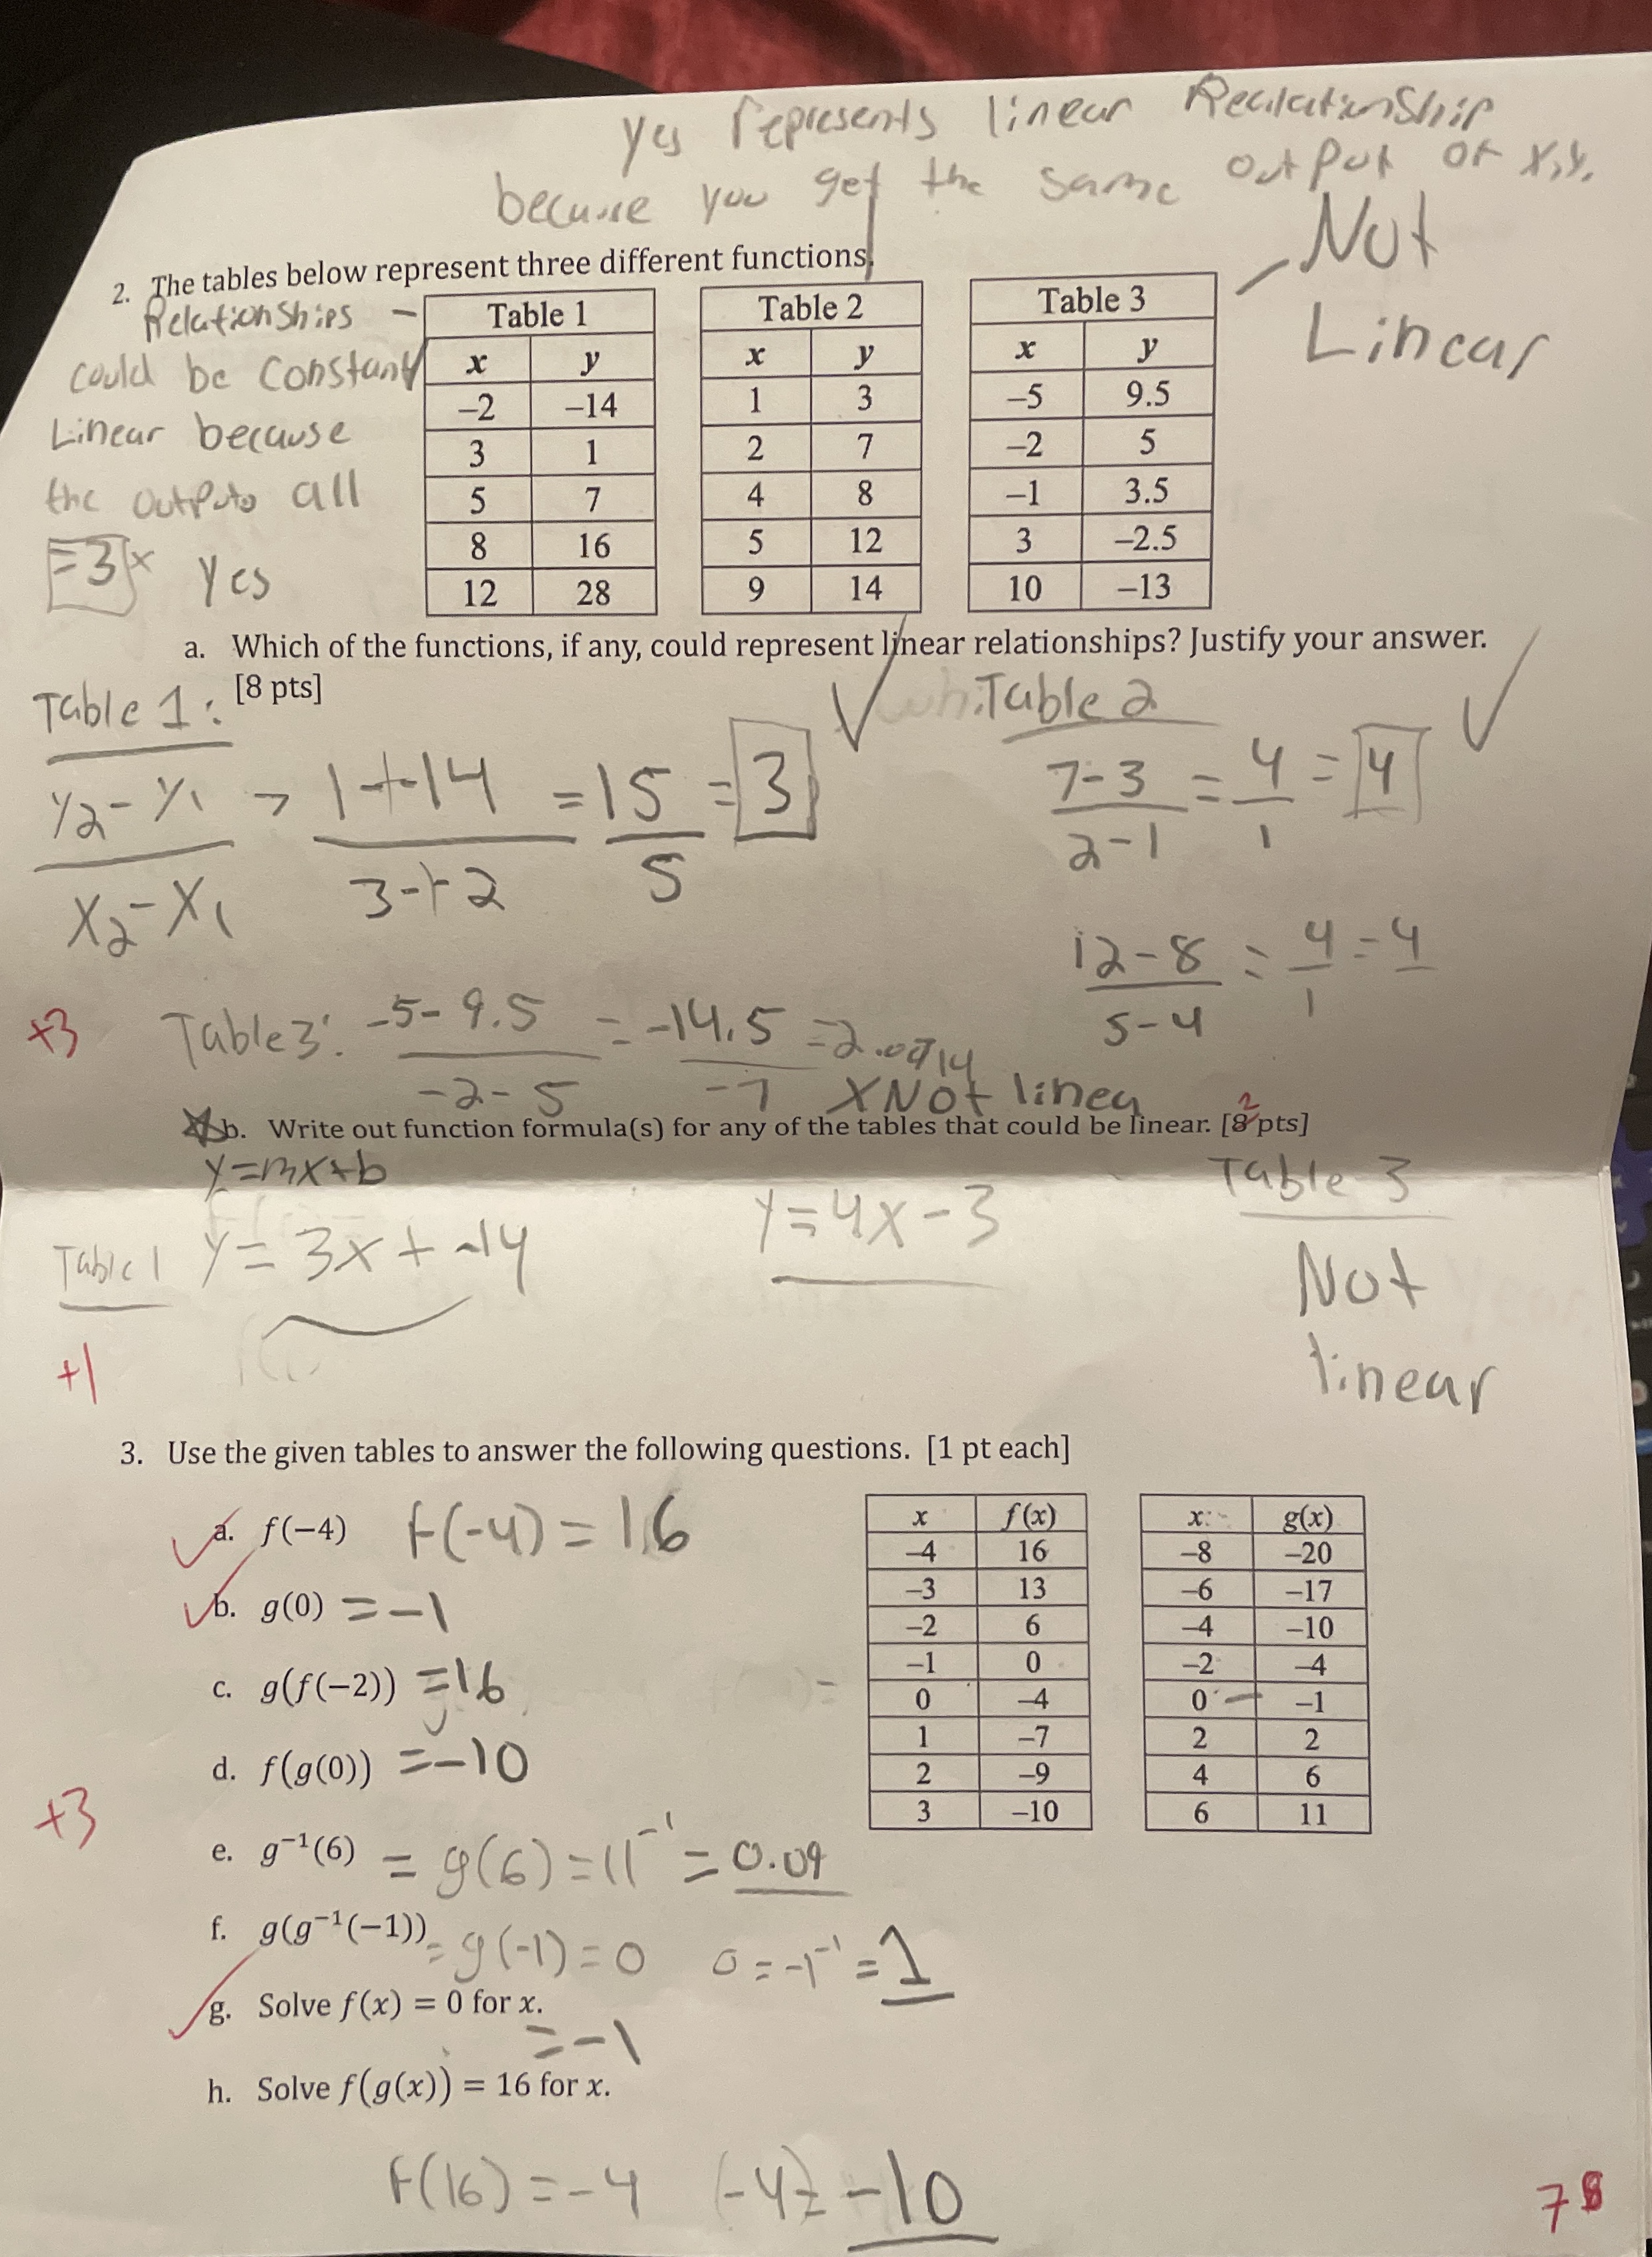 yes represents linear Realationship
because you get the same output of x,y.
Not
Linear
2. The tables below represent three different functions.
Relationships -
could be constant
Linear because
the outputs all
=3x yes
Table 1
x y
-2 -14
3 1
5 7
8 16
12 28
Table 2
x y
1 3
2 7
4 8
5 12
9 14
Table 3
x y
-5 9.5
-2 5
-1 3.5
3 -2.5
10 -13
a. Which of the functions, if any, could represent linear relationships? Justify your answer.
[8 pts]
Table 1:
y2 - y1 → 1+14 = 15 = 3
x2 - x1 3+2 5
Table 2
7-3 = 4 = 4
2-1 1
12-8 = 4 = 4
5-4 1
+3
Table 3: -5-9.5 = -14.5 = 2.0714
-2-5 -7 X Not linea
b. Write out function formula(s) for any of the tables that could be linear. [8 2 pts]
y=mx+b
Table 1 y = 3x + -14
y=4x-3
Table 3
Not
linear
+1
3. Use the given tables to answer the following questions. [1 pt each]
a. f(−4) f(-4) = 16
b. g(0) = -1
c. g(f(−2)) =16
d. f(g(0)) =-10
+3
e. g⁻¹(6) = g(6) = 11⁻¹ = 0.09
f. g(g⁻¹(−1)) = g(-1) = 0 0 = -1⁻¹ = 1
g. Solve f(x) = 0 for x.
= -1
h. Solve f(g(x)) = 16 for x.
f(16) = -4 (-4) = -10
x f(x)
-4 16
-3 13
-2 6
-1 0
0 -4
1 -7
2 -9
3 -10
x g(x)
-8 -20
-6 -17
-4 -10
-2 -4
0 -1
2 2
4 6
6 11
7